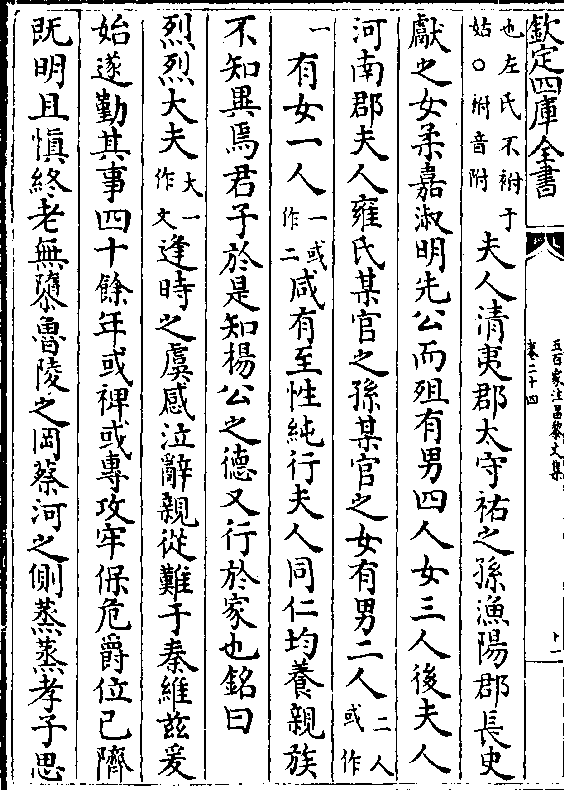 欽定四庫全書
五百家注昌黎文集
卷二十四
十二
也左氏不祔于姑○祔音附夫人清夷郡太守祐之孫漁陽郡長史
獻之女柔嘉淑明先公而殂有男四人女三人後夫人
河南郡夫人雍氏某官之孫某官之女有男二人二人或作
一有女一人一或作二咸有至性純行夫人同仁均養親族
不知異焉君子於是知楊公之德又行於家也銘曰
烈烈大夫大一作文逢時之虞感泣辭親從難于秦維兹爰
始遂勤其事四十餘年或裨或專攻牢保危爵位已隮
既明且慎終老無隳魯陵之岡蔡河之側蒸蒸孝子思